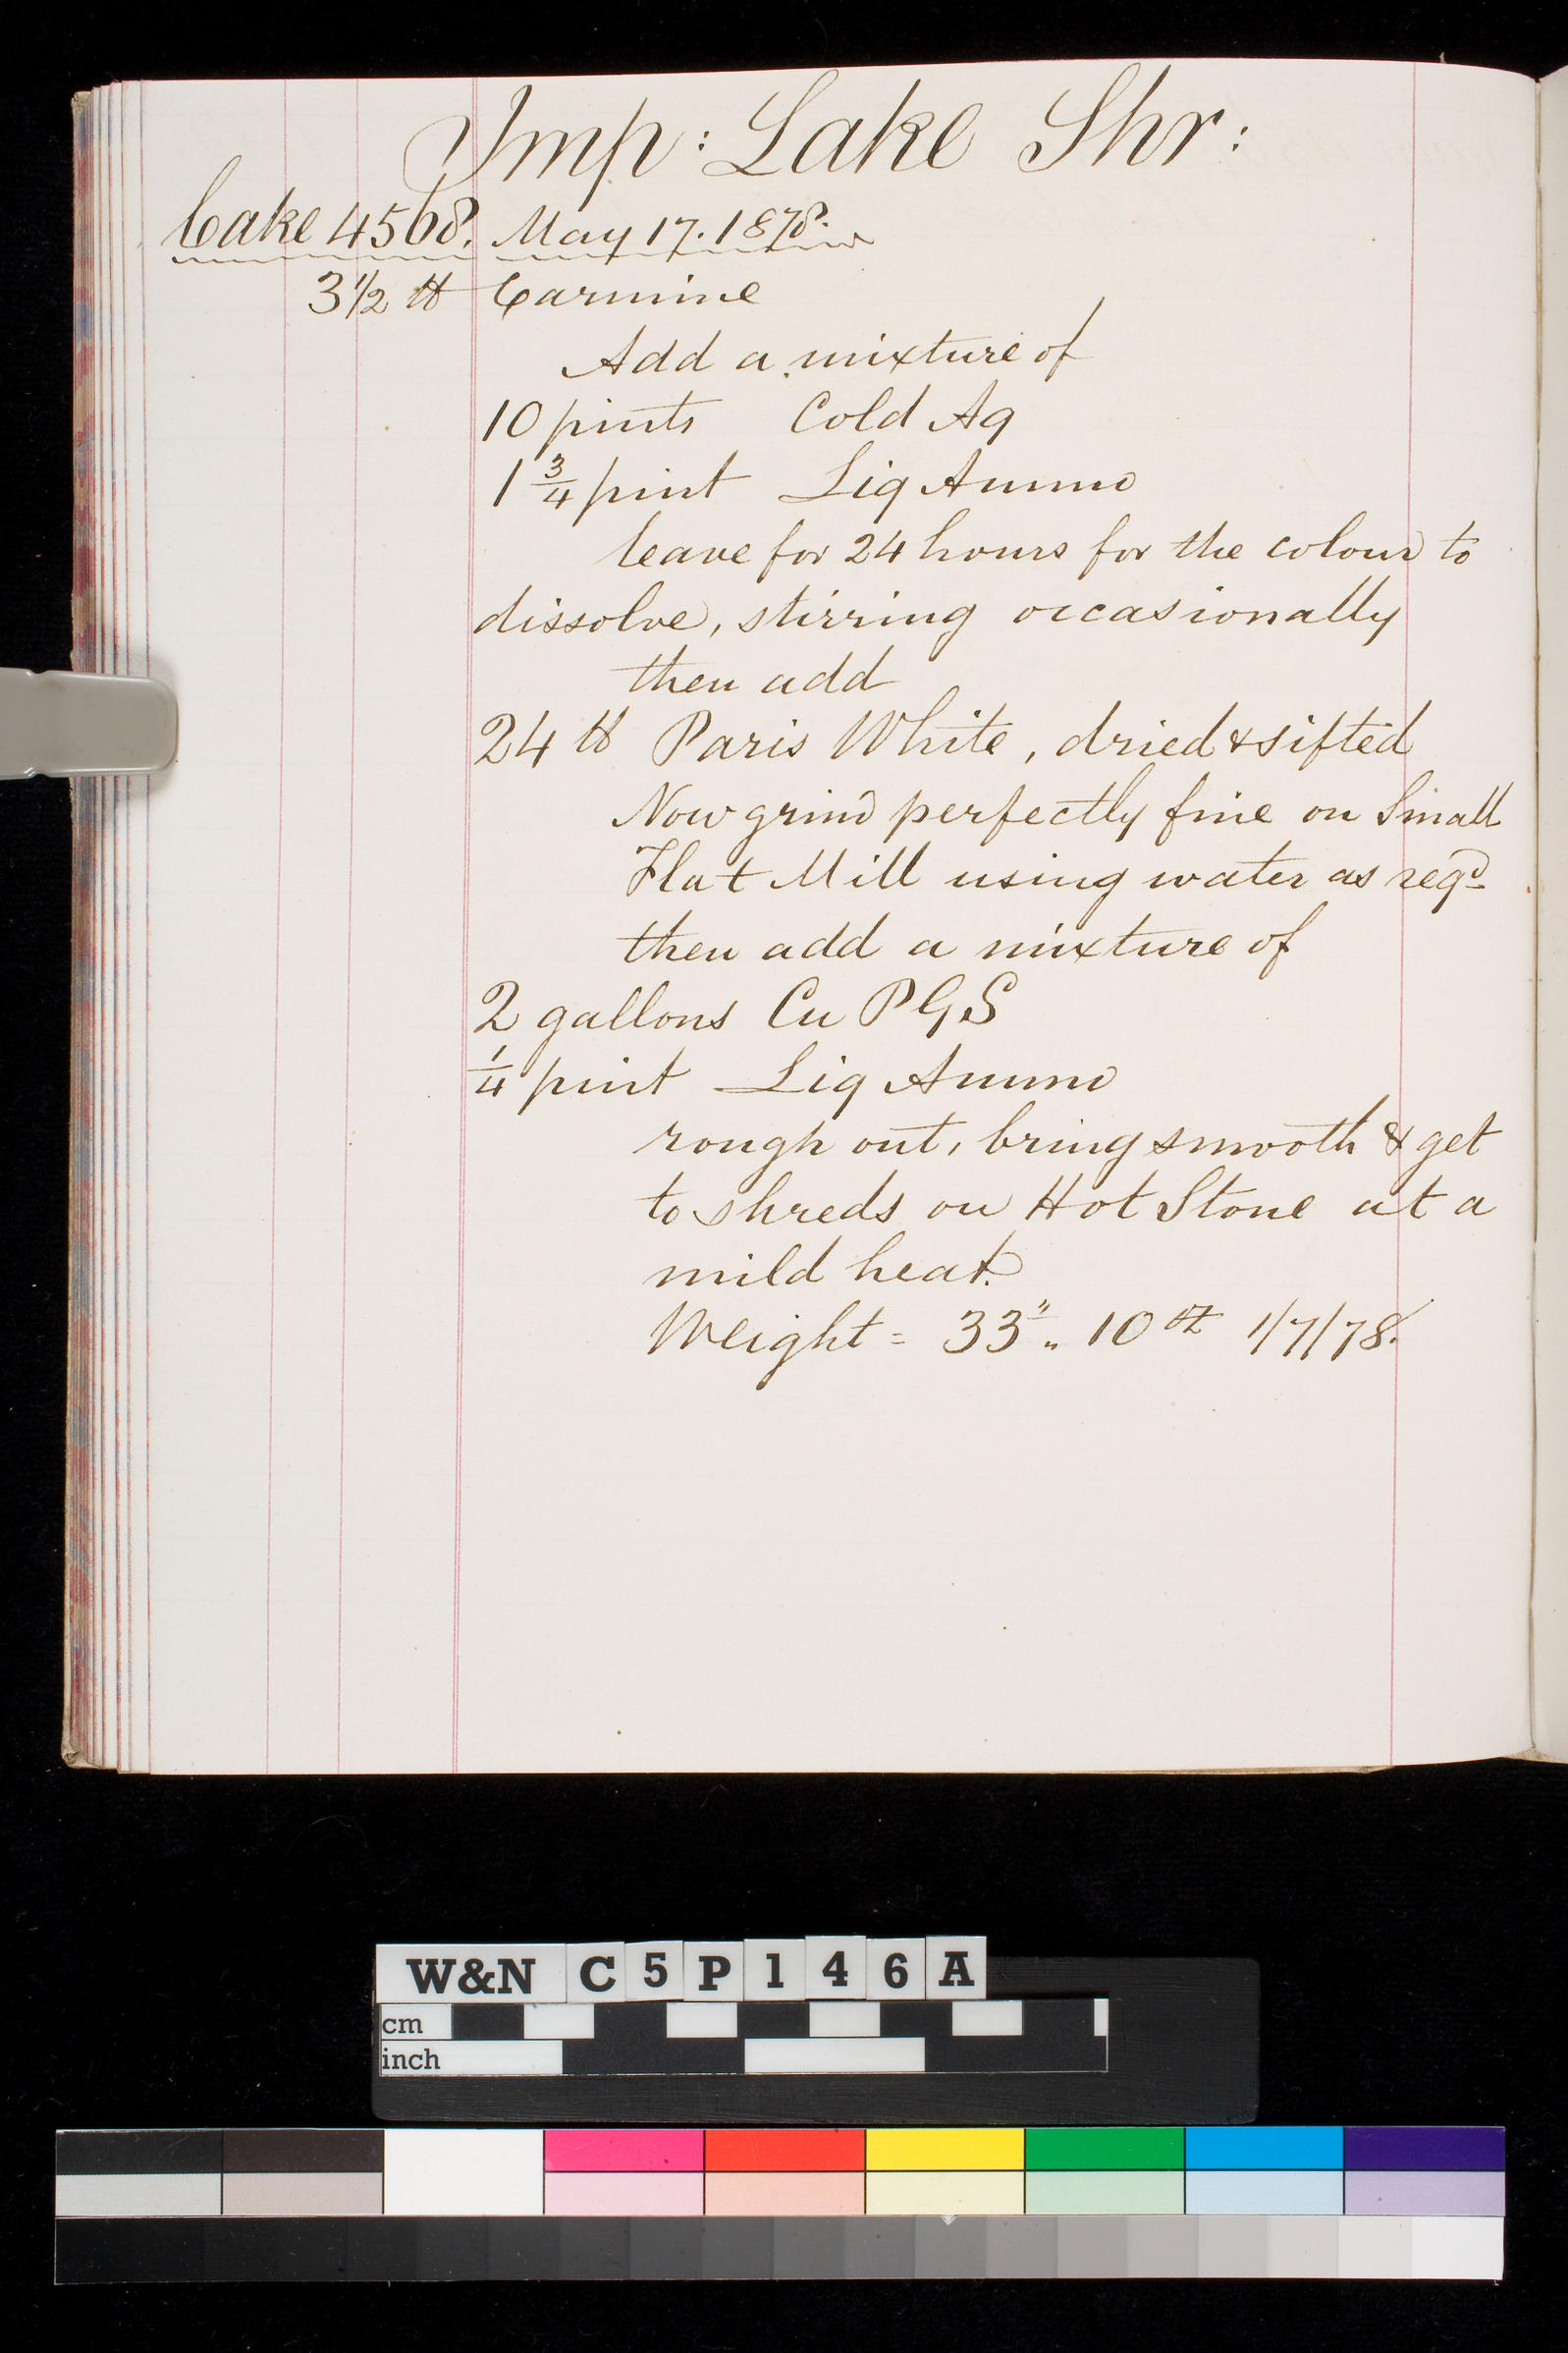 Imp: Lake Shr:
Cake 4568. May 17. 1878.
3 1/2 ℔ Carmine
Add a mixture of
10 pints Cold Aq
1 3/4 pint Liq Ammo
leave for 24 hours for the colour to
dissolve, stirring occasionally
then add
24 ℔ Paris White, dried & sifted
Now grind perfectly fine on Small
Flat Mill using water as reqd
then add a mixture of
2 gallons Cu P G S
1/4 pint Liq Ammo
rough out, bring smooth & get
to shreds on Hot Stone at a
mild heat.
Weight = 33" „ 10 oz 1/7/78.
W&N C5P146A
cm
inch